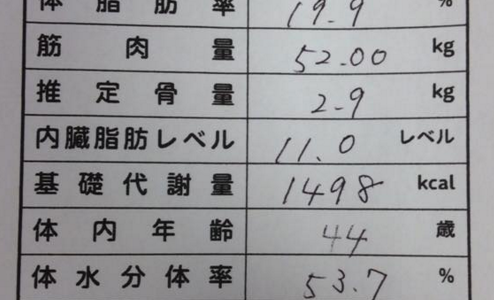 体脂肪率 19.9 %
筋肉量 52.00 kg
推定骨量 2.9 kg
内臓脂肪レベル 11.0 レベル
基礎代謝量 1498 kcal
体内年齢 44 歳
体水分体率 53.7 %